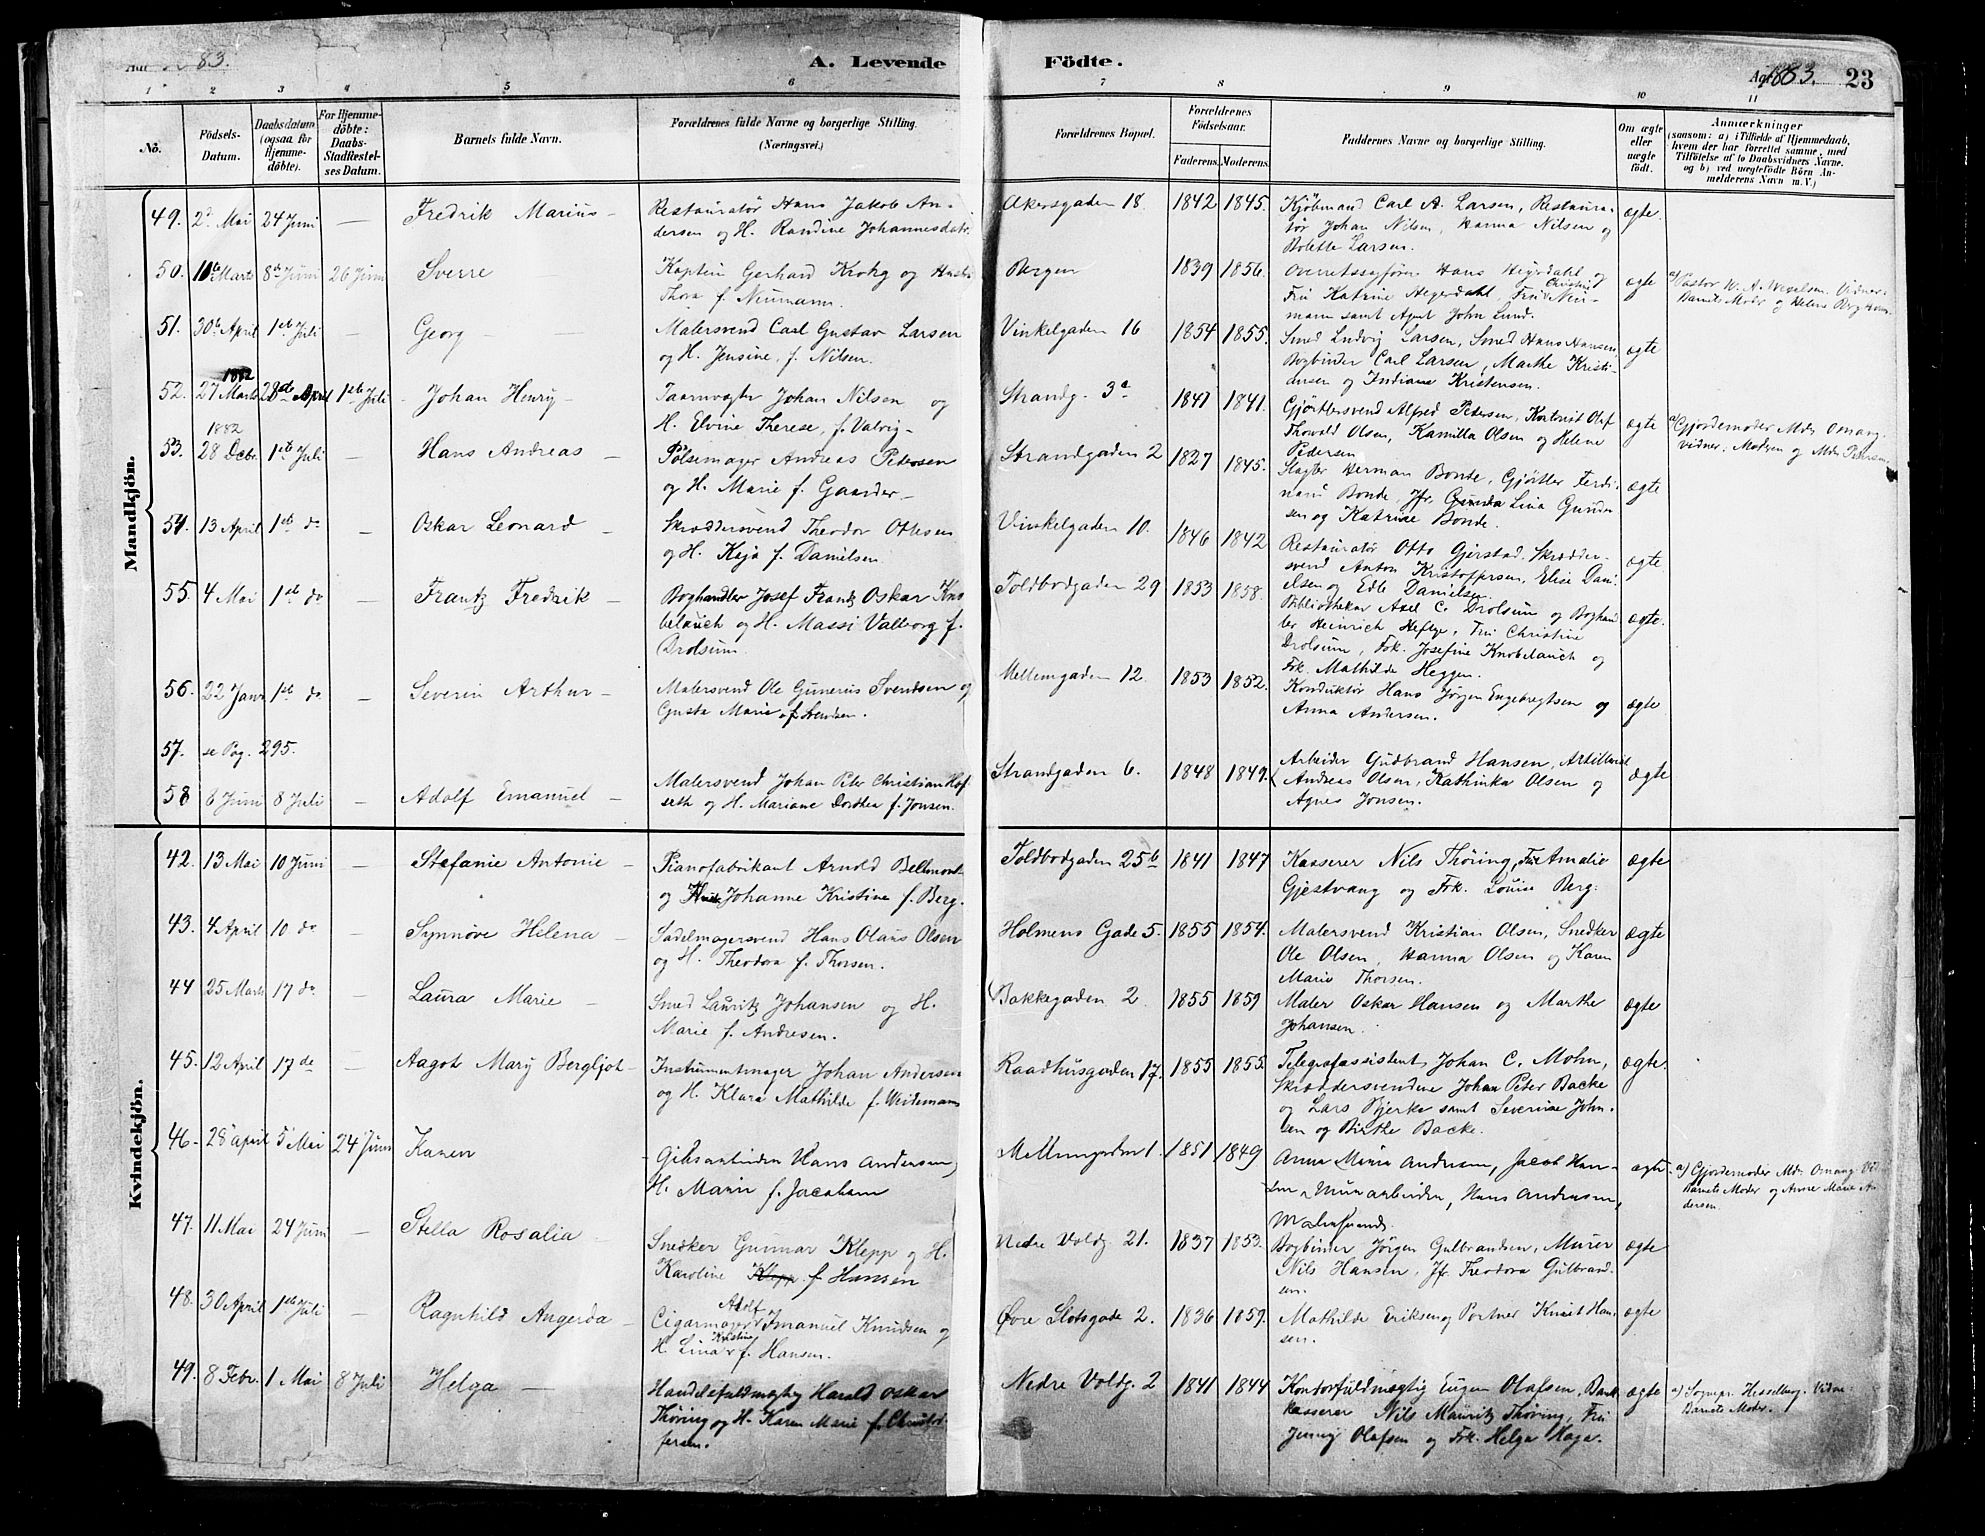 Aar 1883.
A. Levende
Födte.
Aar 1883.
23
1 2 3 4 5 6 7 8 9 10 11
No.
Födsels-
Datum.
Daabsdatum
(ogsaa for
Hjemme-
döbte).
For Hjemme-
döbte:
Daabs-
Stadfæstel-
ses Datum.
Barnets fulde Navn.
Forældrenes fulde Navne og borgerlige Stilling.
(Næringsvei.)
Forældrenes Bopæl.
Forældrenes
Födselsaar.
Faderens. Moderens.
Faddernes Navne og borgerlige Stilling.
Om ægte
eller
uægte
födt.
Anmærkninger
(saasom: a) i Tilfælde af Hjemmedaab,
hvem der har forrettet samme, med
Tilföielse af to Daabsvidners Navne.
og b) ved uægtefödte Börn An-
melderens Navn m. V.)
Mandkjön.
49. 2den Mai 24 Juni — Fredrik Marius -
Restauratør Hans Jakob An-
dersen og H. Randine Johannesdatr.
Akersgaden 18. 1842 1845.
Kjöbmand Carl A. Larsen, Restaura-
tör Johan Nilsen, Hanna Nilsen og
Bolette Larsen.
ægte.
50. Marts 8de Juni 26 Juni Sverre —
Kaptein Gerhard Krohg og Hustru
Thora f. Neumann.
Bergen 1839 1856.
Overretssagförer Hans Heyerdahl og
Fru Katrine Hegerdahl Fru Christine Neu-
mann samt Agent John Lund.
ægte
a) Pastor W. A. Wexelsen. Vidner:
Barnets Moder og Helene Berg
51. 30te April 1ste Juli — Georg —
Malersvend Carl Gustav Larsen
og H. Jensine, f. Nilsen.
Vinkelgaden 16 1854 1855.
Smed Ludvig Larsen, Smed Hans Hansen,
Bogbinder Carl Larsen, Marthe Kristi-
ansen og Indiane Kristensen.
ægte
1882
52. 27 Marts 28de April 1ste Juli Johan Henry -
Taarnvagter Johan Nilsen og
H. Elvine Therese, f. Valvig -
Strandg. 3a 1841 1841.
Gjörtlersvend Alfred Petersen, Kontorist Olaf
Thorvald Olsen, Kamilla Olsen og Helene
Pedersen
ægte
a) Gjordemoder Md. Omang.
Vidner: Moderen og Md. Petersen
1882
53. 28 Decbr. 1ste Juli — Hans Andreas —
Pølsemager Andreas Petersen
og H. Marie f. Gaarder -
Strandgaden 2 1827 1845.
Slagter Herman Bonde, Gjörtler Ferdi-
nand Bonde, Jfr. Gunda Lina Gunder
sen og Katrine Bonde.
ægte
54. 13 April 1ste do — Oskar Leonard —
Skræddersvend Theodor Ottesen
og H. Kaja f. Danielsen.
Vinkelgaden 10. 1846 1842
Restauratör Otto Gjerstad. Skrædder-
svend Anton Kristoffersen, Elise Dani-
elsen og Edle Danielsen.
ægte.
55. 4 Mai 1ste do — Frantz Fredrik —
Boghandler Josef Frantz Oskar Kno-
belauch og H. Massi Valborg f.
Drolsum.
Toldbodgaden 29 1853 1858.
Bibliothekar Axel C. Drolsum og Boghand-
ler Heinrich Heftye, Fru Christine
Drolsum, Frk. Josefine Knobelauch og
Frk. Mathilde Heggen.
ægte.
56. 22 Janr. 1ste do — Severin Arthur -
Malersvend Ole Gunerius Svendsen og
Gusta Marie f. Svendsen.
Mellemgaden 12. 1853 1852.
Konduktör Hans Jörgen Engebregtsen og
Anna Andersen.
ægte
57. se Pag. 295.
58 6 Juni 8 Juli — Adolf Emanuel —
Malersvend Johan Peter Christian Hof-
seth og H. Mariane Dorthea f. Jonsen.
Strandgaden 6. 1848 1849.
Arbeider Gudbrand Hansen, Artillerist
Andreas Olsen, Kathinka Olsen og
Agnes Jonsen.
ægte
Kvindekjön.
42. 13 Mai 10 Juni — Stefanie Antonie —
Pianofabrikant Arnold Bellmont
og Johanne Kristine f. Berg.
Toldbodgaden 25b 1841 1847
Kasserer Nils Thöring, Fru Amalie
Gjestvang og Frk. Louise Berg.
ægte
43. 4 April 10 do — Synnöve Helena —
Sadelmagersvend Hans Olaus Olsen
og H. Theodora f. Thorsen.
Holmens Gade 5. 1855 1854.
Malersvend Kristian Olsen, Snedker
Ole Olsen, Hanna Olsen og Karen
Marie Thorsen.
ægte
44 25 Marts 17 do — Laura Marie —
Smed Lauritz Johansen og H.
Marie f. Andresen.
Bakkegaden 2. 1855 1859
Maler Oskar Hansen og Marthe
Johansen.
ægte
45. 12 April 17 de — Aagot Mary Bergljot -
Instrumentmager Johan Andersen
og H. Klara Mathilde f. Weidemann
Raadhusgaden 17. 1855 1855.
Telegrafassistent Johan C. Mohn,
Skræddersvendene Johan Peter Backe
og Lars Bjerke samt Severine John-
sen og Birthe Backe.
ægte.
46- 28 april 5 Mai 24 Juni Karen
Gibsarbeider Hans Andersen,
H. Marie f. Jacobsen
Mellemgaden 1. 1851 1849
Anna Maria Andersen, Jacob Han-
sen, Murarbeider, Hans Andersen,
Malersvend.
ægte.
a) Gjordemoder Md. Omang. Vid:
Barnets Moder og Anne Marie An
dersen.
47. 11 Mai 24 Juni — Stella Rosalia —
Snedker Gunnar Klepp og H.
Karoline Klepp f. Hansen
Nedre Voldg. 21. 1837 1853.
Bogbinder Jörgen Gulbrandsen, Murer
Nils Hansen, Jfr. Theodora Gulbrand-
sen.
ægte
48. 30 April 1ste Juli — Ragnhild Angerda —
Cigarmager Adolf Imanuel Knudsen og
H. Lina Kristine f. Hansen.
Øvre Slotsgade 2. 1836 1859.
Mathilde Eriksen og Portner Knut Han-
sen.
ægte
49. 8 Febr. 1 Mai 8 Juli Helga —
Handelsfuldmægtig Harald Oskar
Thöring og H. Karen Marie f. Christof-
fersen.
Nedre Voldg. 2 1841 1844
Kontorfuldmægtig Eugen Olafsen, Bank-
kasserer Nils Mauritz Thöring, Fru
Jenny Olafsen og Frk. Helga Haga.
ægte
a) Sognepr. Hesselberg. Vidne
Barnets Moder.